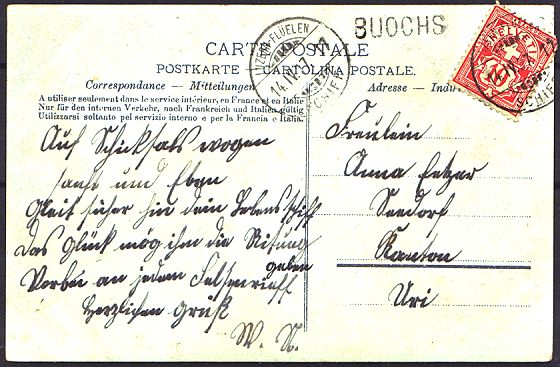 BUOCHS
LUZERN-FLÜELEN
14.IV.07
SCHIFF
CARTE POSTALE
POSTKARTE - CARTOLINA POSTALE.
Correspondance — Mitteilungen
Adresse —
A utiliser seulement dans le service intérieur, en France et en Italie
Nur für den internen Verkehr, nach Frankreich und Italien gültig
Utilizzarsi soltanto pel servizio interno e per la Francia e Italia
Auf Schicksals wogen
sanft und Eben
Gleit sicher hin dein Lebens schiff
Das Glück mög ihm die Richtung
geben
Vorbei an jedem Felsenrieff
Herzlichen Gruß
W. N.
Freulein
Anna
Seedorf
Kanton
Uri